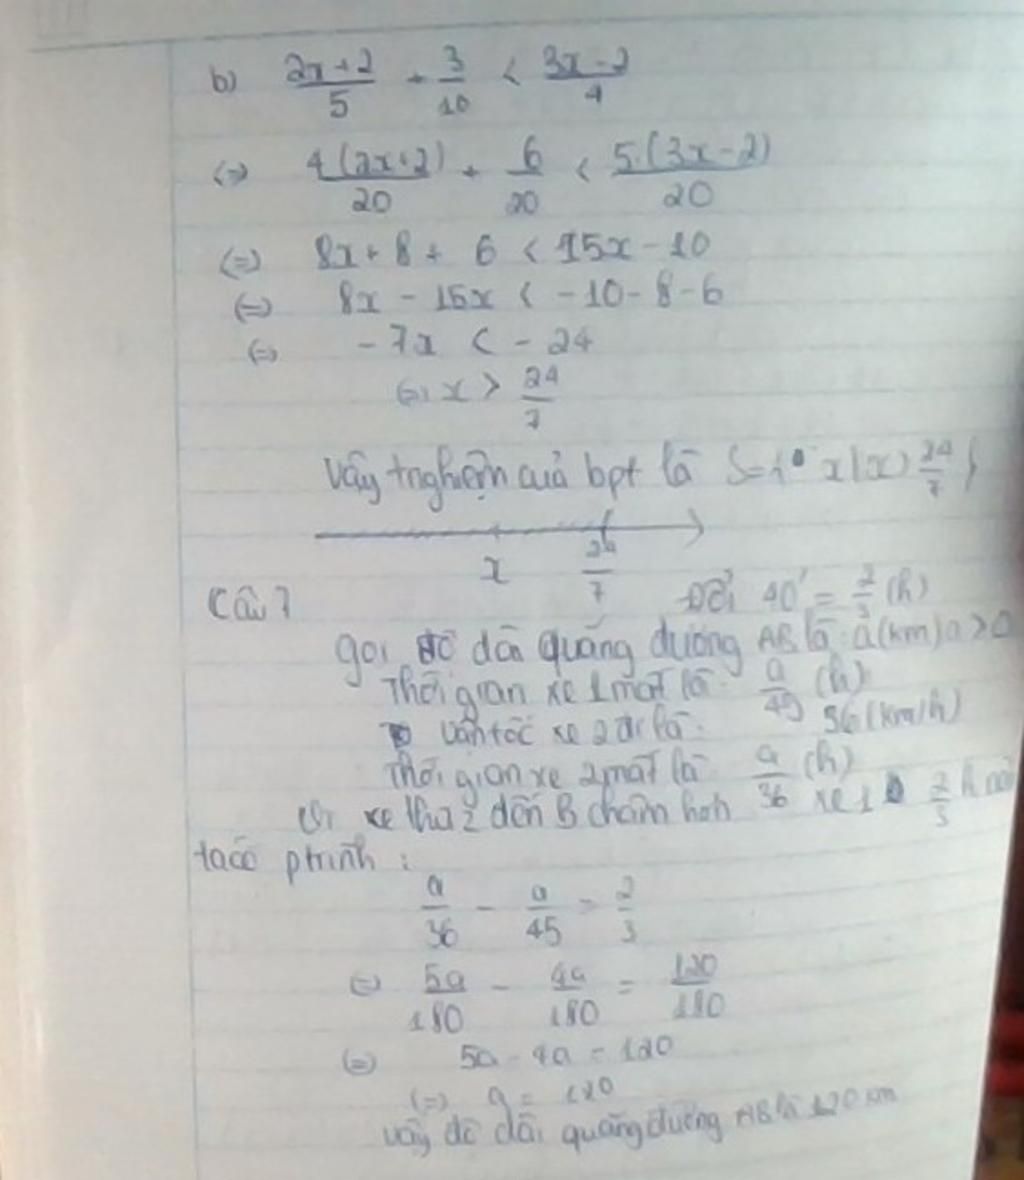 b) (2x+2)/5 + 3/10 < (3x-2)/4
(=) 4(2x+2)/20 + 6/20 < 5.(3x-2)/20
(=) 8x + 8 + 6 < 15x - 10
(=) 8x - 15x < -10 - 8 - 6
(=) -7x < -24
(=) x > 24/7
Vậy tnghiệm của bpt là S={x|x> 24/7}
x 24/7
Câu 7 Đổi 40' = 2/3 (h)
gọi độ dài quãng đường AB là a(km) a>0
Thời gian xe 1 mất là a/45 (h)
Vận tốc xe 2 đi là 36(km/h)
Thời gian xe 2 mất là a/36 (h)
Vì xe thứ 2 đến B chậm hơn xe 1 2/3 h
ta có ptrình :
a/36 - a/45 = 2/3
(=) 5a/180 - 4a/180 = 120/180
(=) 5a - 4a = 120
(=) a = 120
vậy độ dài quãng đường AB là 120 km